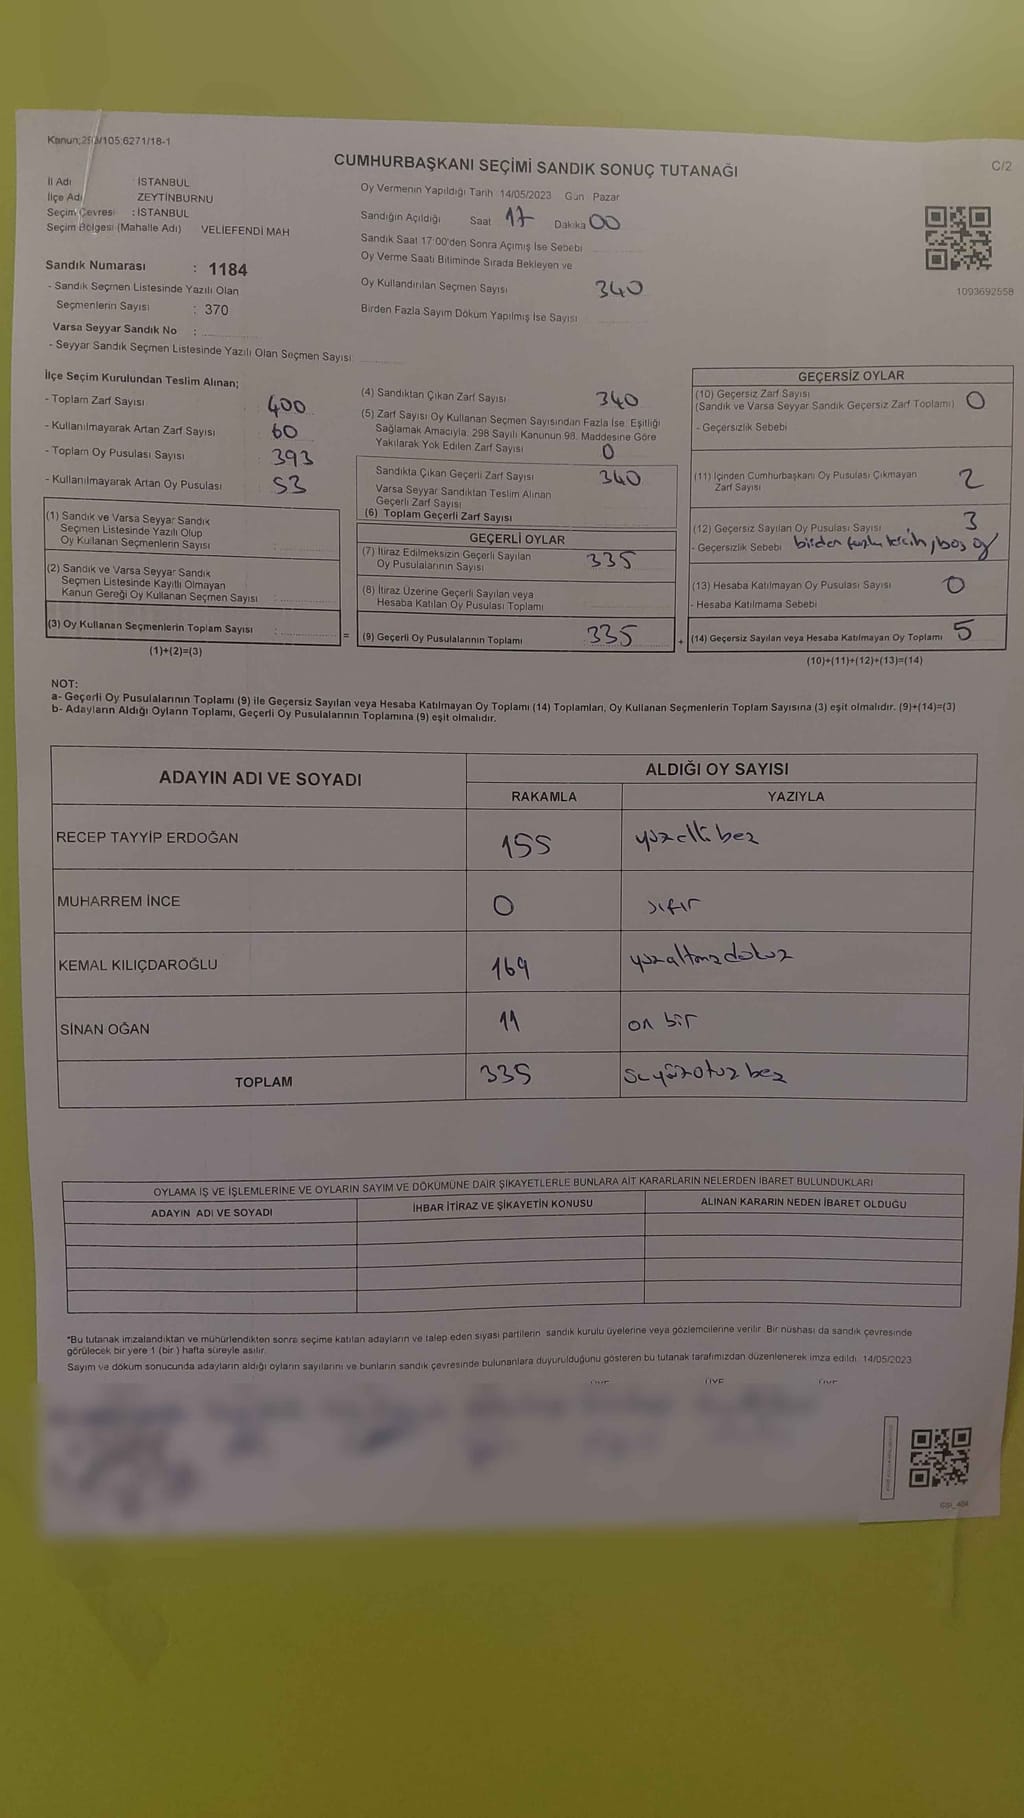 Kanun;298/105;6271/18-1
CUMHURBAŞKANI SEÇİMİ SANDIK SONUÇ TUTANAĞI
C/2
İl Adı : İSTANBUL
İlçe Adı ZEYTİNBURNU
Seçim Çevresi : İSTANBUL
Seçim Bölgesi (Mahalle Adı) VELİEFENDİ MAH
Sandık Numarası : 1184
- Sandık Seçmen Listesinde Yazılı Olan
Seçmenlerin Sayısı : 370
Varsa Seyyar Sandık No :
- Seyyar Sandık Seçmen Listesinde Yazılı Olan Seçmen Sayısı:
Oy Vermenin Yapıldığı Tarih 14/05/2023 Gün Pazar
Sandığın Açıldığı Saat 17 Dakika 00
Sandık Saat 17:00'den Sonra Açımış İse Sebebi
Oy Verme Saati Bitiminde Sırada Bekleyen ve
Oy Kullandırılan Seçmen Sayısı 340
Birden Fazla Sayım Döküm Yapılmış İse Sayısı
1093692558
İlçe Seçim Kurulundan Teslim Alınan;
- Toplam Zarf Sayısı : 400
- Kullanılmayarak Artan Zarf Sayısı 60
- Toplam Oy Pusulası Sayısı : 393
- Kullanılmayarak Artan Oy Pusulası : 53
(1) Sandık ve Varsa Seyyar Sandık
Seçmen Listesinde Yazılı Olup
Oy Kullanan Seçmenlerin Sayısı :
(2) Sandık ve Varsa Seyyar Sandık
Seçmen Listesinde Kayıtlı Olmayan
Kanun Gereği Oy Kullanan Seçmen Sayısı :
(3) Oy Kullanan Seçmenlerin Toplam Sayısı :
(1)+(2)=(3)
=
(4) Sandıktan Çıkan Zarf Sayısı 340
(5) Zarf Sayısı Oy Kullanan Seçmen Sayısından Fazla İse, Eşitliği
Sağlamak Amacıyla, 298 Sayılı Kanunun 98. Maddesine Göre
Yakılarak Yok Edilen Zarf Sayısı 0
Sandıkta Çıkan Geçerli Zarf Sayısı 340
Varsa Seyyar Sandıktan Teslim Alınan
Geçerli Zarf Sayısı
(6) Toplam Geçerli Zarf Sayısı
GEÇERLİ OYLAR
(7) İtiraz Edilmeksizin Geçerli Sayılan
Oy Pusulalarının Sayısı 335
(8) İtiraz Üzerine Geçerli Sayılan veya
Hesaba Katılan Oy Pusulası Toplamı
(9) Geçerli Oy Pusulalarının Toplamı 335
+
GEÇERSİZ OYLAR
(10) Geçersiz Zarf Sayısı 0
(Sandık ve Varsa Seyyar Sandık Geçersiz Zarf Toplamı)
- Geçersizlik Sebebi
(11) İçinden Cumhurbaşkanı Oy Pusulası Çıkmayan
Zarf Sayısı 2
(12) Geçersiz Sayılan Oy Pusulası Sayısı 3
- Geçersizlik Sebebi birden fazla tercih, boş oy
(13) Hesaba Katılmayan Oy Pusulası Sayısı 0
- Hesaba Katılmama Sebebi
(14) Geçersiz Sayılan veya Hesaba Katılmayan Oy Toplamı 5
(10)+(11)+(12)+(13)=(14)
NOT:
a- Geçerli Oy Pusulalarının Toplamı (9) ile Geçersiz Sayılan veya Hesaba Katılmayan Oy Toplamı (14) Toplamları, Oy Kullanan Seçmenlerin Toplam Sayısına (3) eşit olmalıdır. (9)+(14)=(3)
b- Adayların Aldığı Oyların Toplamı, Geçerli Oy Pusulalarının Toplamına (9) eşit olmalıdır.
ADAYIN ADI VE SOYADI
ALDIĞI OY SAYISI
RAKAMLA YAZIYLA
RECEP TAYYİP ERDOĞAN 155 yüzelli beş
MUHARREM İNCE 0 sıfır
KEMAL KILIÇDAROĞLU 169 yüzaltmışdokuz
SİNAN OĞAN 11 on bir
TOPLAM 335 üçyüzotuz beş
OYLAMA İŞ VE İŞLEMLERİNE VE OYLARIN SAYIM VE DÖKÜMÜNE DAİR ŞİKAYETLERLE BUNLARA AİT KARARLARIN NELERDEN İBARET BULUNDUKLARI
ADAYIN ADI VE SOYADI İHBAR İTİRAZ VE ŞİKAYETİN KONUSU ALINAN KARARIN NEDEN İBARET OLDUĞU
*Bu tutanak imzalandıktan ve mühürlendikten sonra seçime katılan adayların ve talep eden siyasi partilerin sandık kurulu üyelerine veya gözlemcilerine verilir. Bir nüshası da sandık çevresinde
görülecek bir yere 1 (bir) hafta süreyle asılır.
Sayım ve döküm sonucunda adayların aldığı oyların sayılarını ve bunların sandık çevresinde bulunanlara duyurulduğunu gösteren bu tutanak tarafımızdan düzenlenerek imza edildi. 14/05/2023
ÜYE ÜYE ÜYE